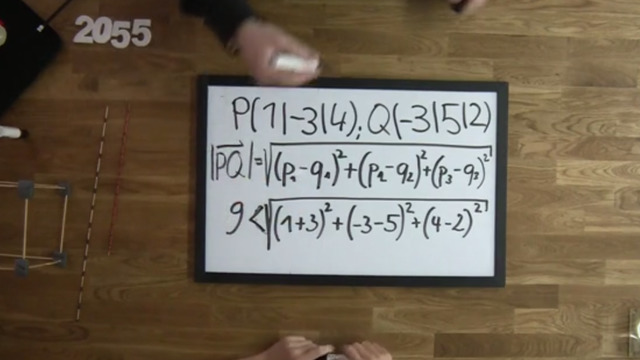 2055
P(1|-3|4); Q(-3|5|2)
|PQ⃗|=√(p₁-q₁)²+(p₂-q₂)²+(p₃-q₃)²
9<√(1+3)²+(-3-5)²+(4-2)²